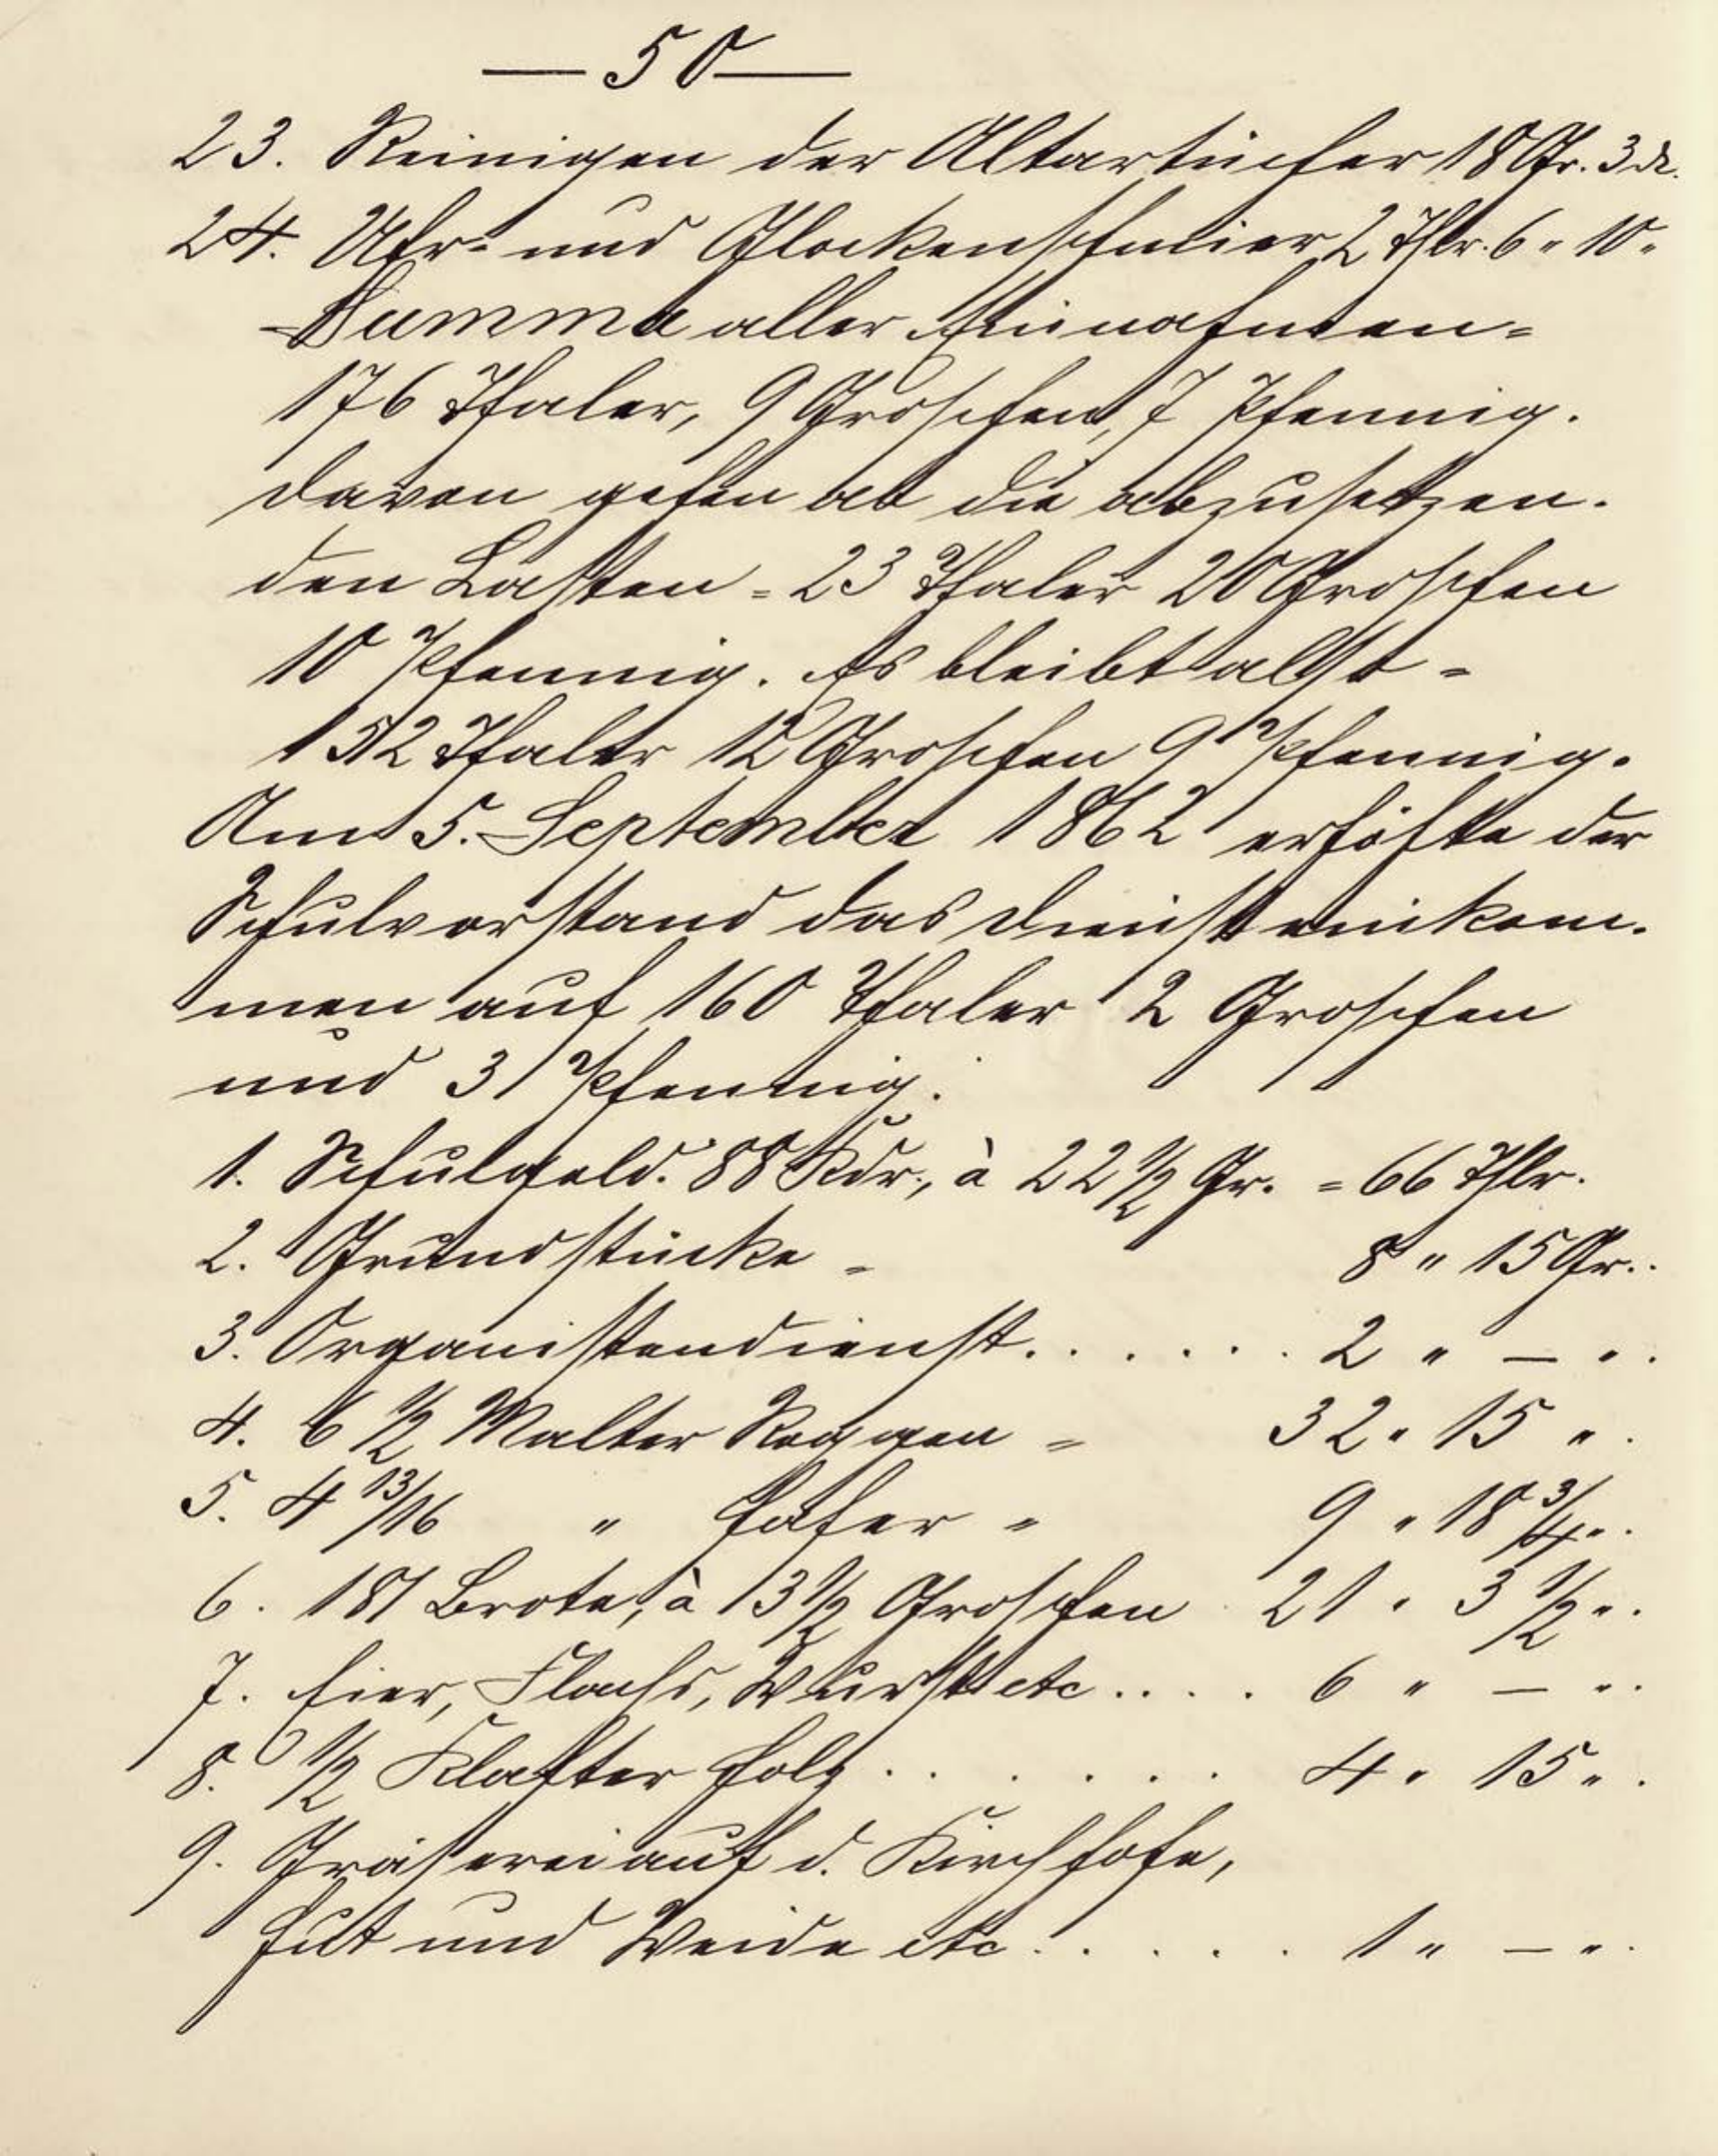 — 50 —
23. Reinigen der Altartücher 18 Gr. 3 ₰.
24. Uhr- und Glockenschmier 2 Thlr. 6 " 10 "
Summa aller Einnahmen =
176 Thaler, 9 Groschen, 7 Pfennig.
Davon gehen ab die abzusetzen-
den Lasten = 23 Thaler 20 Groschen
10 Pfennig. Es bleibt also =
152 Thaler 12 Groschen 9 Pfennig.
Am 5. September 1862 erhöhte der
Schulvorstand das Diensteinkom-
men auf 160 Thaler 2 Groschen
und 3 Pfennig.
1. Schulgeld. 88 Kdr., à 22 1/2 Gr. = 66 Thlr.
2. Grundstücke = 8 " 15 Gr..
3. Organistendienst. . . . . . . 2 " — " .
4. 6 1/2 Malter Roggen = 32 " 15 " .
5. 4 13/16 " Hafer = 9 " 18 3/4 " .
6. 181 Brote, à 13 1/2 Groschen 21 " 3 1/2 " .
7. Eier, Flachs, Wurst etc . . . . 6 " — " .
8. 1/2 Klafter Holz . . . . . . . 4 " 15 " .
9. Gräserei auf d. Kirchhofe,
Hut und Weide etc. . . . . 1 " — " .